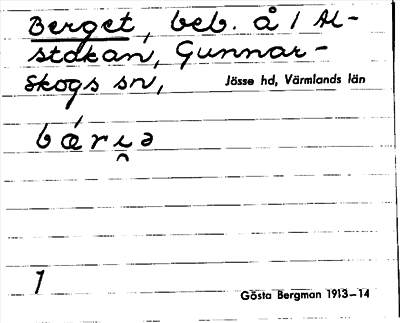 Berget, beb. å 1 Al-
stakan, Gunnar-
skogs sn,
Jösse hd, Värmlands län
bǽri̯ə
1
Gösta Bergman 1913–14